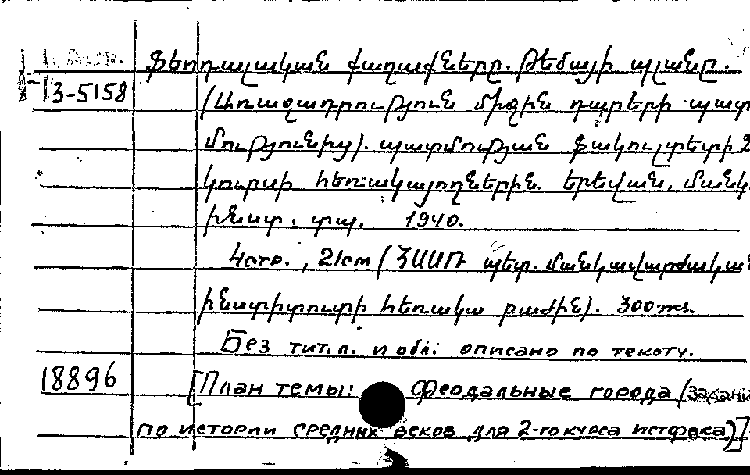 Ֆեոդալական քաղաքները. Թեմայի պլանը.
13-5158
(Առաջադրություն միջին դարերի պատ
մությունից). պատմության ֆակուլտետի 2
կուրսի հեռակայողներին. Երեվան, մանկ.
ինստ. տպ. 1940.
4стр., 21см (ՀՍՍՌ պետ. մանկավարժական
ինստիտուտի հեռակա բաժին). 300тк.
Без тит.л. и обл. описано по тексту.
18896 [План темы: Феодальные города (задани
по истории средних веков для 2-го курса истфака)]